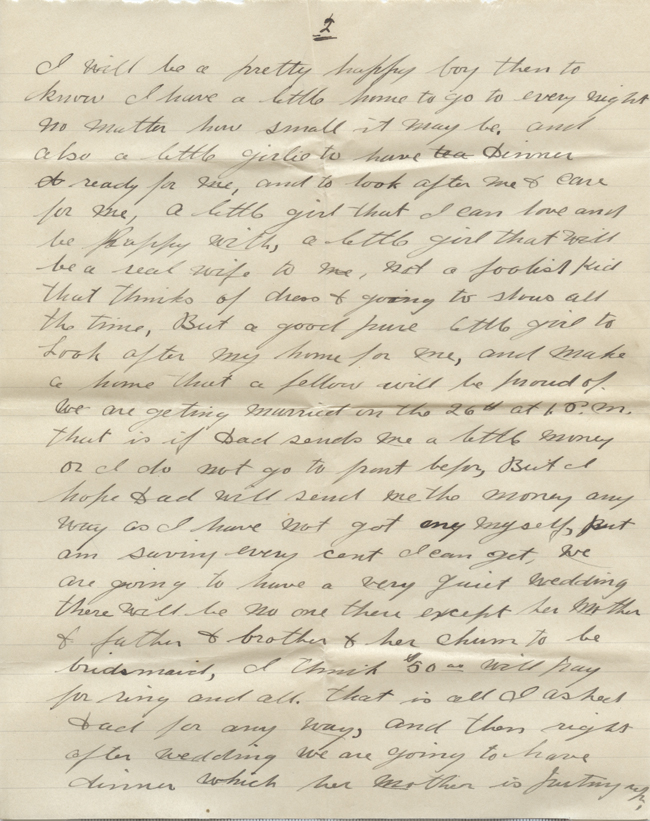 2
I will be a pretty happy boy then to
know I have a little home to go to every night
no matter how small it may be, and
also a little girlie to have tea Dinner
& ready for me, and to look after me & care
for me, a little girl that I can love and
be happy with, a little girl that will
be a real wife to me, not a foolish Kid
that thinks of dress & going to shows all
the time, But a good pure little girl to
Look after my home for me, and make
a home that a fellow will be proud of.
We are geting married on the 26th at 1 P.m.
that is if Dad sends me a little money
or I do not go to front befor, But I
hope Dad will send me the money any
way as I have not got any myself, but
am saving every cent I can get, We
are going to have a very quiet wedding
there will be no one there except her Mother
& father & brother & her chum to be
bridsmaid, I think $50 00 will pay
for ring and all. that is all I asked
Dad for any way, and then right
after wedding we are going to have
dinner which her mother is putting up,